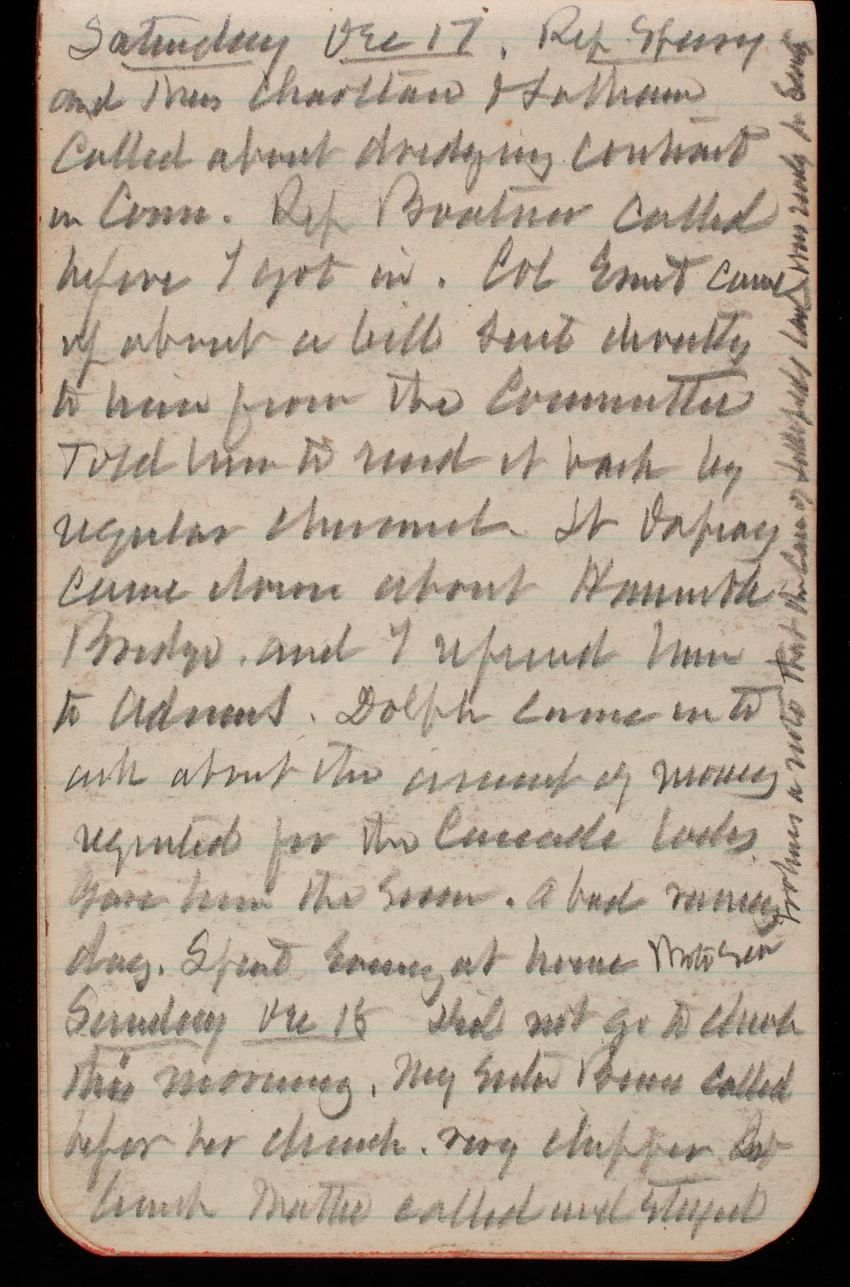 Saturday Dec 17. Rep Sperry
and Charltan & Latham
Called about dredging contract
in Conn. Rep Boatner called
before I got in. Col Ernst came
up about a bill sent directly
to him from the Committee
Told him to send it back by
regular channel. Lt
came down about
Bridge. and I referred him
to Adams. Dolph came in to
ask about the amount of money
required for the Cascade locks
Gave him the. A bad rainy
day. Spent Evening at home Wrote Sen
a note that the Case of land was ready to
Sunday Dec 18 Did not go to church
this morning. My Sister called
before her church. very chipper. At
lunch Mattie called and stayed